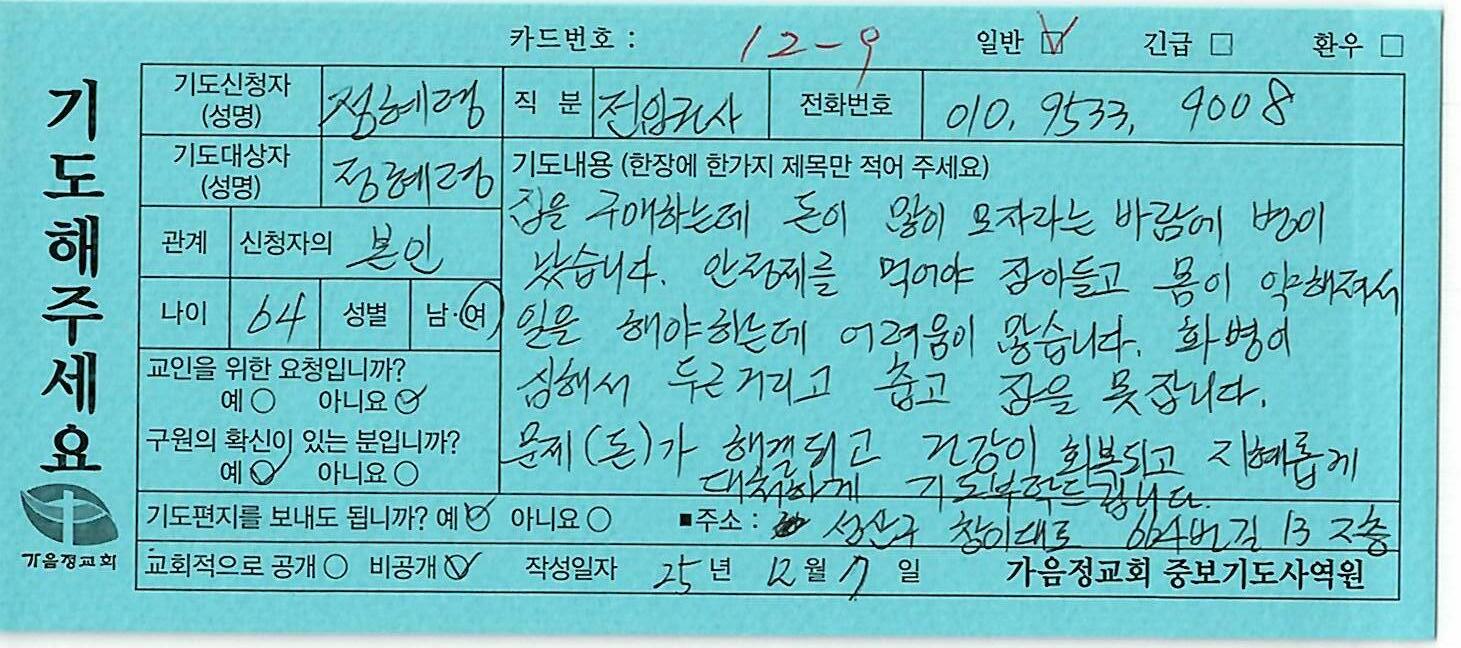 카드번호 : 12-9 일반 ☑ 긴급 □ 환우 □
기도해주세요
가음정교회
기도신청자 (성명) 정혜령 직 분 전화번호 010. 9533. 9008
기도대상자 (성명) 정혜령
관계 신청자의 본인
나이 64 성별 남·여
교인을 위한 요청입니까?
예 ○ 아니요 ✓
구원의 확신이 있는 분입니까?
예 ✓ 아니요 ○
기도내용 (한장에 한가지 제목만 적어 주세요)
집을 구매하는데 돈이 많이 모자라는 바람에 병이
났습니다. 안정제를 먹어야 잠이들고 몸이 약해져서
일을 해야하는데 어려움이 많습니다. 화병이
심해서 두근거리고 춥고 잠을 못잡니다.
문제(돈)가 해결되고 건강이 회복되고 지혜롭게
대처하게 기도부탁드립니다.
기도편지를 보내도 됩니까? 예 ✓ 아니요 ○ ■주소 : 성산구 창이대로 664번길 13
교회적으로 공개 ○ 비공개 ✓ 작성일자 25년 12월 7일 가음정교회 중보기도사역원